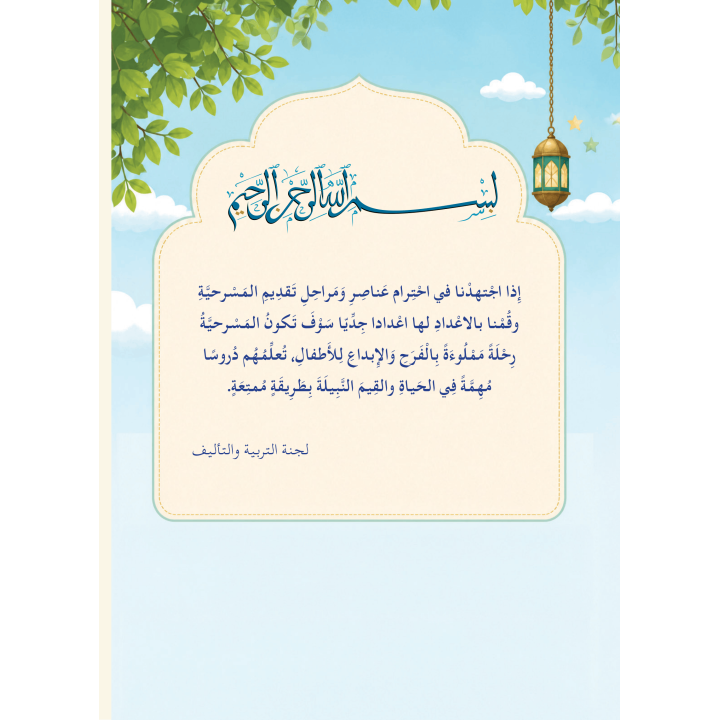 بسم الله الرحمن الرحيم
إِذا اجْتهدْنا في احْتِرام عَناصِرِ وَمَراحِلِ تَقدِيمِ المَسْرحيَّةِ
وقُمْنا بالاعْدادِ لها اعْدادا جِدِّيّا سَوْفَ تَكونُ المَسْرحيَّةُ
رِحْلَةً مَمْلُوءَةً بِالْفَرَحِ وَالإِبداعِ لِلأَطفالِ، تُعلِّمُهُم دُروسًا
مُهِمَّةً فِي الحَياةِ والقِيمَ النَّبِيلَةَ بِطَرِيقَةٍ مُمتِعَةٍ.
لجنة التربية والتأليف